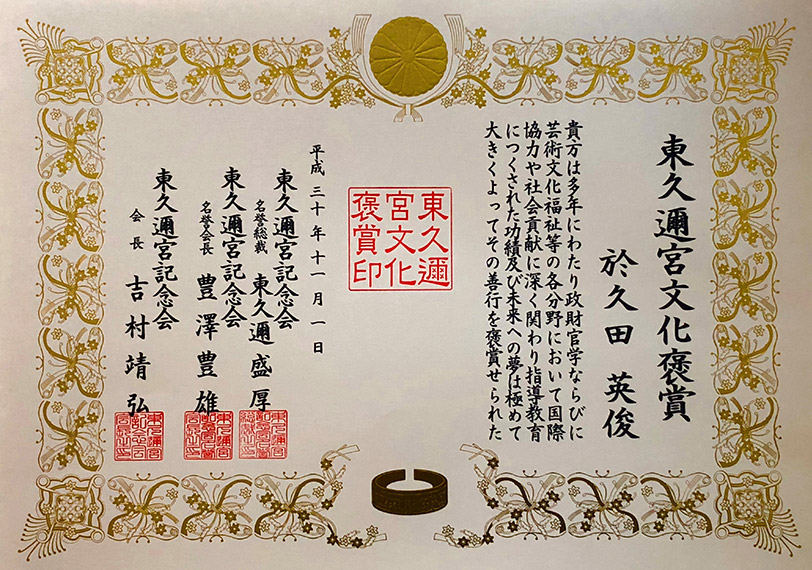 東久邇宮文化褒賞
於久田英俊
貴方は多年にわたり政財官学ならびに
芸術文化福祉等の各分野において国際
協力や社会貢献に深く関わり指導教育
につくされた功績及び未来への夢は極めて
大きくよってその善行を褒賞せられた
東久邇
宮文化
褒賞印
平成三十年十一月一日
東久邇宮記念会
名誉総裁 東久邇盛厚
東久邇宮記念会
名誉会長 豊澤豊雄
東久邇宮記念会
会長 吉村靖弘